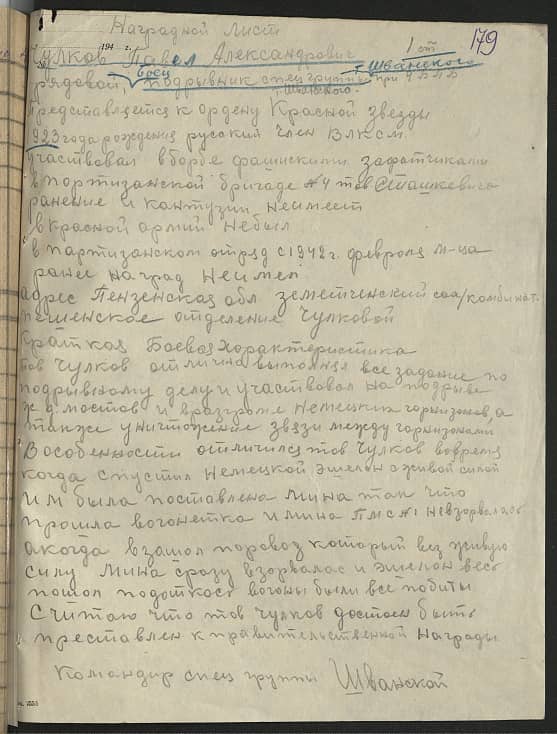 Наградной лист
194 г.
Чулков Павел Александрович 1 от. 179
боец т. Шванского
рядовой, подрывник спец группы при 4 БПБ
т. Шванского.
представляется к ордену Красной звезды
923 года рождения русский член ВЛКСМ.
участвовал вборбе фашискими захатчиками
в портизанской бригаде №4 тов Сташкевича
ранение и кантузии неимеет
в Красной армии небыл
в партизанском отряд с 1942 г. февроля м-ца
ранее наград неимел
адрес Пензенская обл земетченский сах/комбинат.
отделение Чулковой
краткая Боевая характеристика
тов Чулков отлична выполнял все задание по
подрывному делу и участвовал на подрыве
ж д мостов и вразгроме немецких горнизонов, а
также уничтожение звязи между горнизонами
Вособенности отличился тов Чулков вовремя
когда спустил немецкой эшелон с живой силой
им была поставлена мина так что
прошла вогонетка и мина ПМС №1 невзорвалась
акогда взашол поровоз который вез живую
силу мина сразу взорвалас и эшелон весь
пошол подоткось вогоны были все побиты
Считаю что тов Чулков достоен быть
преставлен к правительственной Награды
Командир спец группы Шванской